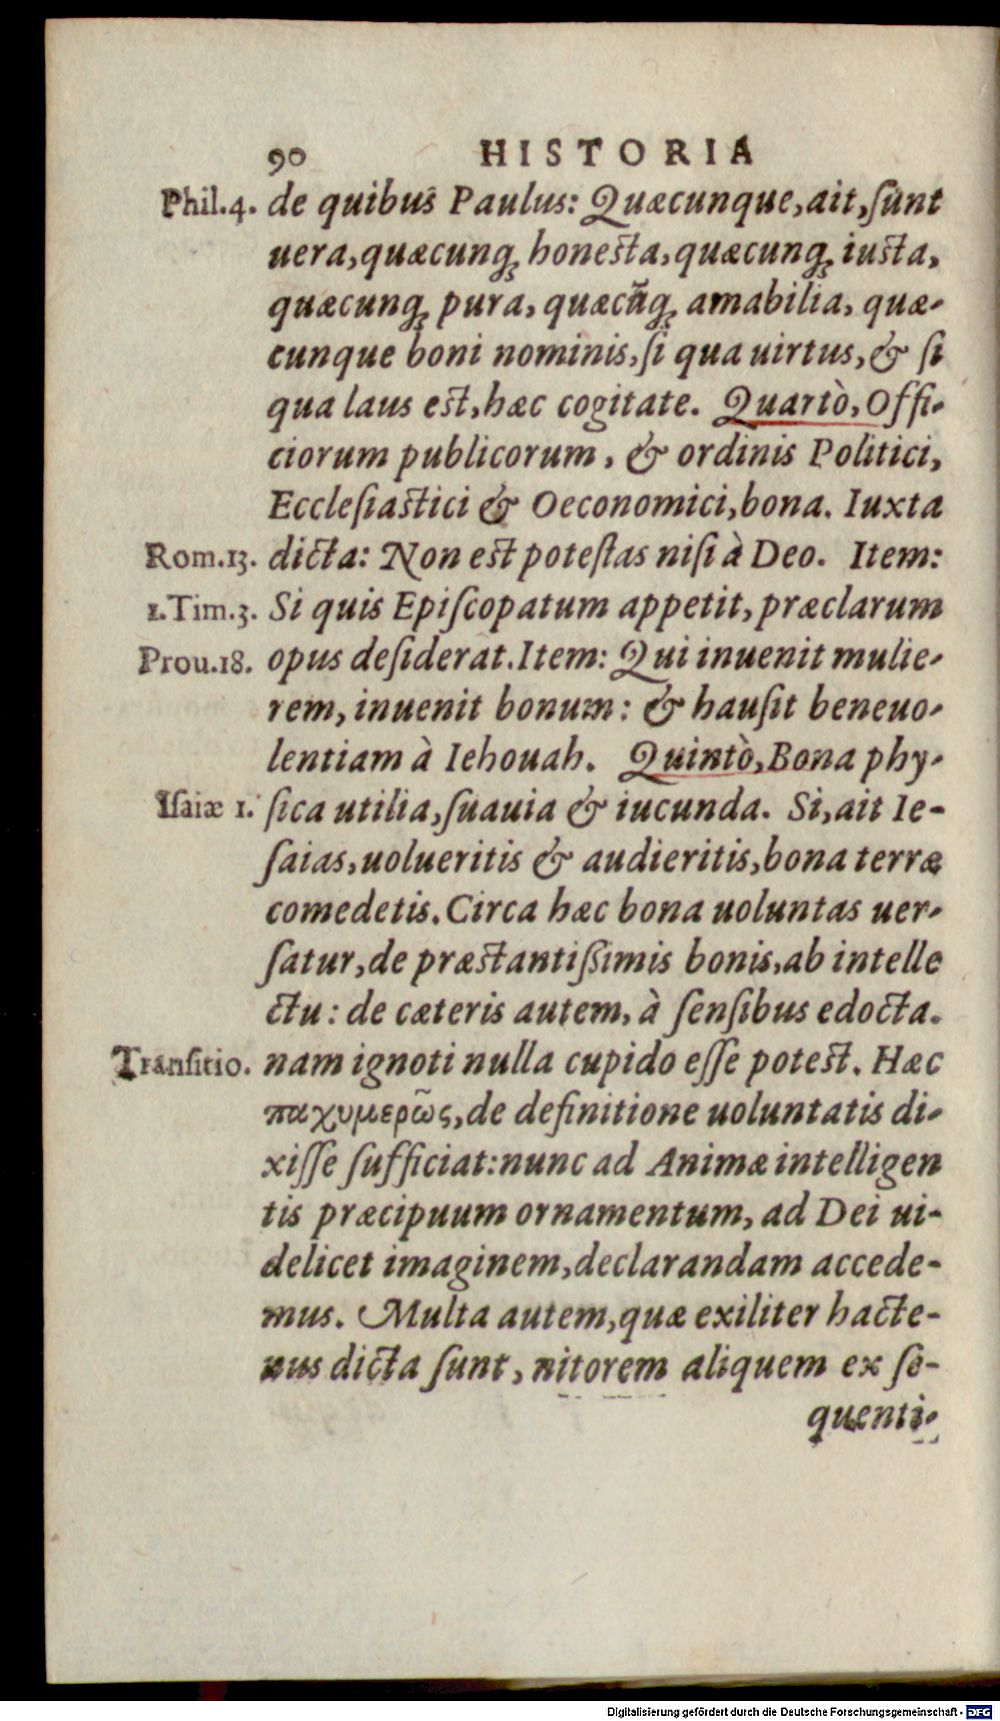 90 HISTORIA
Phil.4. de quibus Paulus: Quæcunque, ait, ſunt
uera, quæcunqꝫ honesta, quæcunqꝫ iusta,
quæcunqꝫ pura, quæcũqꝫ amabilia, quæ-
cunque boni nominis, ſi qua uirtus, & ſi
qua laus est, hæc cogitate. Quartò, Offi-
ciorum publicorum, & ordinis Politici,
Eccleſiastici & Oeconomici, bona. Iuxta
Rom.13. dicta: Non est poteſtas niſi à Deo. Item:
1.Tim.3. Si quis Epiſcopatum appetit, præclarum
Prou.18. opus deſiderat. Item: Qui inuenit mulie-
rem, inuenit bonum: & hauſit beneuo-
lentiam à Iehouah. Quintò, Bona phy-
Iſaiæ 1. ſica utilia, ſuauia & iucunda. Si, ait Ie-
ſaias, uolueritis & audieritis, bona terræ
comedetis. Circa hæc bona uoluntas uer-
ſatur, de præstantißimis bonis, ab intelle
ctu: de cæteris autem, à ſenſibus edocta.
Tranſitio. nam ignoti nulla cupido eſſe potest. Hæc
παχυμερῶς, de definitione uoluntatis di-
xiſſe ſufficiat: nunc ad Animæ intelligen
tis præcipuum ornamentum, ad Dei ui-
delicet imaginem, declarandam accede-
mus. Multa autem, quæ exiliter hacte-
nus dicta ſunt, nitorem aliquem ex ſe-
quenti-
Digitalisierung gefördert durch die Deutsche Forschungsgemeinschaft - DFG